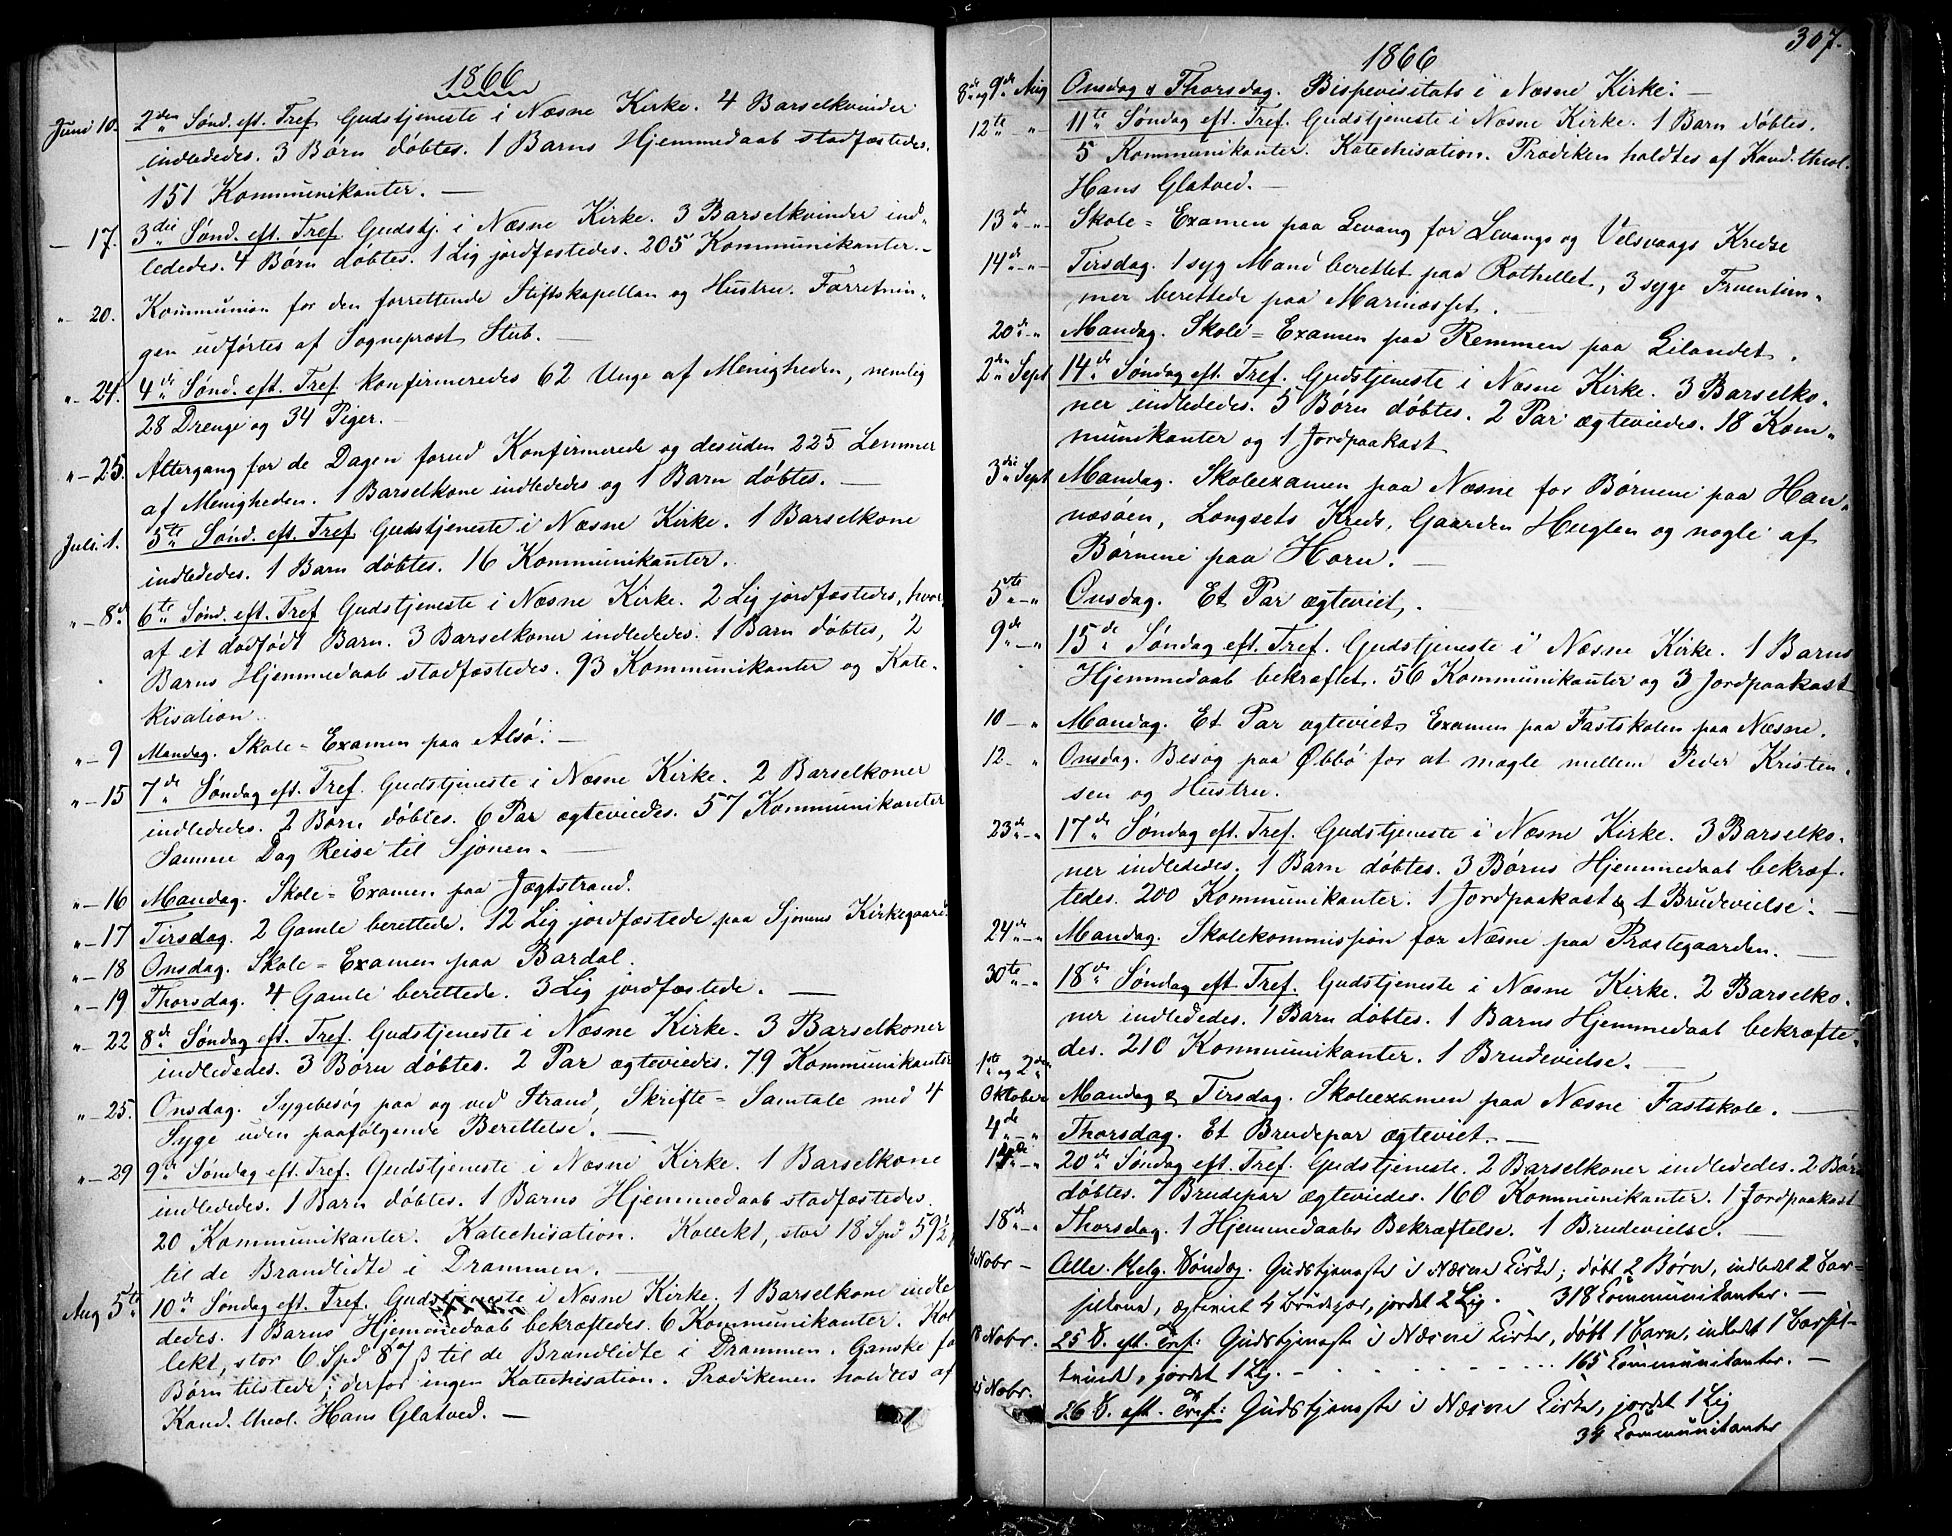 1866
Juni 10. 2den Sønd. eft. Tref. Gudstjeneste i Næsne Kirke. 4 Barselkvinder
indlededes. 3 Børn døbtes. 1 Barns Hjemmedaab stadfæstedes.
151 Kommunikanter. —
— 17. 3die Sønd. eft. Tref. Gudstj. i Næsne Kirke. 3 Barselkvinder ind-
lededes. 4 Børn døbtes. 1 Lig jordfæstedes. 205 Kommunikanter. —
" 20. Kommunion for den forrettende Stiftskapellan og Hustru. Forretnin-
gen udførtes af Sogneprest Stub. —
" - 24. 4de Sønd. eft. Tref. konfirmeredes 62 Unge af Menigheden, nemlig
28 Drenge og 34 Piger. —
" - 25. Altergang for de Dagen forud Konfirmerede og desuden 225 Lemmer
af Menigheden. 1 Barselkone indlededes og 1 Barn døbtes. —
Juli 1. 5te Sønd. eft. Tref. Gudstjeneste i Næsne Kirke. 1 Barselkone
indlededes. 1 Barn døbtes. 16 Kommunikanter.
" - 8d 6te Sønd. eft. Tref. Gudstjeneste i Næsne Kirke. 2 Lig jordfæstedes, hvor-
af et dødfødt Barn. 3 Barselkoner indlededes. 1 Barn døbtes, 2
Barns Hjemmedaab stadfæstedes. 93 Kommunikanter og Kate-
kisation.
" - 9 Mandag. Skole = Examen paa Alsø. —
" - 15 7de Søndag eft. Tref. Gudstjeneste i Næsne Kirke. 2 Barselkoner
indlededes. 2 Børn døbtes. 6 Par ægteviedes. 57 Kommunikanter
Samme Dag Reise til Sjonen. —
" - 16 Mandag. Skole = Examen paa Jægtstrand.
" - 17 Tirsdag. 2 Gamle berettede. 12 Lig jordfæstede paa Sjonens Kirkegaard
" - 18 Onsdag. Skole = Examen paa Bardal.
" - 19 Thorsdag. 4 Gamle berettede. 3 Lig jordfæstede. —
" - 22 8de Søndag eft. Tref. Gudstjeneste i Næsne Kirke. 3 Barselkoner
indlededes. 3 Børn døbtes. 2 Par ægteviedes. 79 Kommunikanter
" - 25. Onsdag. Sygebesøg paa og ved Strand, Skrifte = Samtale med 4
Syge uden paafølgende Berettelse. —
" - 29 9de Søndag eft. Tref. Gudstjeneste i Næsne Kirke. 1 Barselkone
indlededes. 1 Barn døbtes. 1 Barns Hjemmedaab stadfæstedes.
20 Kommunikanter. Katechisation. Kollekt, stor 18 Spd 59½
til de Brandlidte i Drammen. —
Aug 5te 10de Søndag eft. Tref. Gudstjeneste i Næsne Kirke. 1 Barselkone indle
dedes. 1 Barns Hjemmedaab bekræftedes. 6 Kommunikanter. Kol
lekt, stor 6 Spd 87 ß til de Brandlidte i Drammen. Ganske få
Børn tilstede; derfor ingen Katechisation. Prædikenen holdtes af
Kand. theol. Hans Glatved. —
307.
1866
8de og 9de Aug Onsdag & Thorsdag. Bispevisitats i Næsne Kirke. —
12te - " 11te Søndag eft. Tref. Gudstjeneste i Næsne Kirke. 1 Barn døbtes.
5 Kommunikanter. Katechisation. Prædiken holdtes af Kand. theol.
Hans Glatved. —
13de " - Skole = Examen paa Levang for Levangs og Velsvaags Kredse
14de - " - Tirsdag. 1 syg Mand berettet paa Rothellet, 3 syge Fruentim-
mer berettede paa
20de " Mandag. Skole = Examen paa Remmen paa
2den Sept 14de Søndag eft. Tref. Gudstjeneste i Næsne Kirke. 3 Barselko-
ner indlededes. 5 Børn døbtes. 2 Par ægteviedes. 18 Kom-
munikanter og 1 Jordpaakast
3die Sept Mandag. Skoleexamen paa Næsne for Børnene paa Han-
nøsøen, Longsets Kreds, Gaarden Huglen og nogle af
Børnene paa Horn. —
5te - " Onsdag. Et Par ægteviet.
9de - " 15de Søndag eft. Tref. Gudstjeneste i Næsne Kirke. 1 Barns
Hjemmedaab bekræftet. 56 Kommunikanter og 3 Jordpaakast
10 - " Mandag. Et Par ægteviet. Examen paa Fastskolen paa Næsne.
12 - " Onsdag. Besøg paa Øbbø for at mægle mellem Peder Kristen-
sen og Hustru.
23de - " 17de Søndag eft. Tref. Gudstjeneste i Næsne Kirke. 3 Barselko-
ner indlededes. 1 Barn døbtes. 3 Børns Hjemmedaab bekræf-
tedes. 200 Kommunikanter. 1 Jordpaakast & 1 Brudevielse. —
24de - " Mandag. Skolekommission for Næsne paa Prestegaarden. —
30te - " 18de Søndag eft. Tref. Gudstjeneste i Næsne Kirke. 2 Barselko-
ner indlededes. 1 Barn døbtes. 1 Barns Hjemmedaab bekræfte-
des. 210 Kommunikanter. 1 Brudevielse. —
1ste og 2den
Oktober Mandag & Tirsdag. Skoleexamen paa Næsne Fastskole. —
4de - " Thorsdag. Et Brudepar ægteviet. —
14de - " 20de Søndag eft. Tref. Gudstjeneste. 2 Barselkoner indlededes. 2 Børn
døbtes. 7 Brudepar ægteviedes. 160 Kommunikanter. 1 Jordpaakast
18de - " Thorsdag. 1 Hjemmedaabs Bekræftelse. 1 Brudevielse. —
4 Novbr — Alle. Helg. Søndag. Gudstjeneste i Næsne Kirke; døbt 2 Børn, indledt 2 Bar-
selkone, ægteviet 4 Brudepar, jordet 2 Lig. 318 Communikanter. —
18 Novbr. 25 S. eft. Tref: Gudstjeneste i Næsne Kirke, døbt 1 Barn, indledt 1 Barsel-
kvinde, jordet 1 Lig. — 165 Communikanter. —
25 Novbr. 26 S. eft. Tref: Gudstjeneste i Næsne Kirke, jordet 1 Lig
34 Communikanter